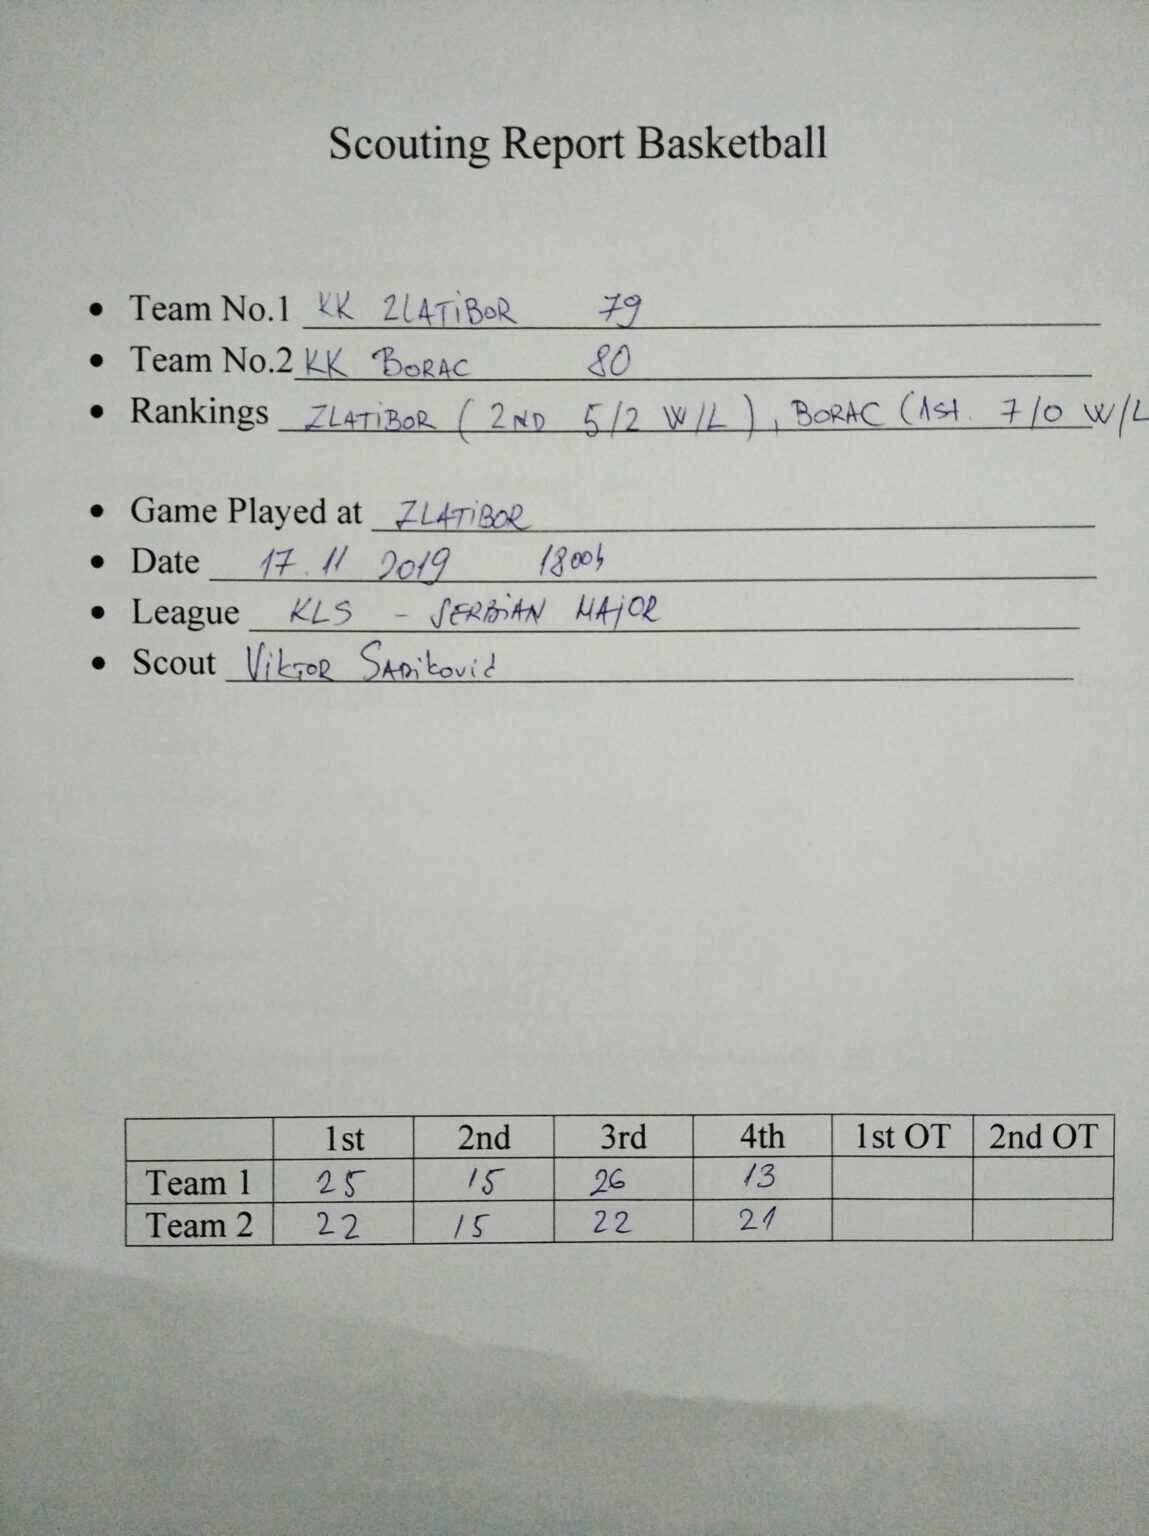 Scouting Report Basketball
• Team No.1 KK ZLATIBOR 79
• Team No.2 KK BORAC 80
• Rankings ZLATIBOR ( 2ND 5/2 W/L ), BORAC (1st. 7/0 W/L
• Game Played at ZLATIBOR
• Date 17. 11 2019 1800h
• League KLS - SERBIAN MAJOR
• Scout Viktor Sadiković
1st 2nd 3rd 4th 1st OT 2nd OT
Team 1 25 15 26 13
Team 2 22 15 22 21